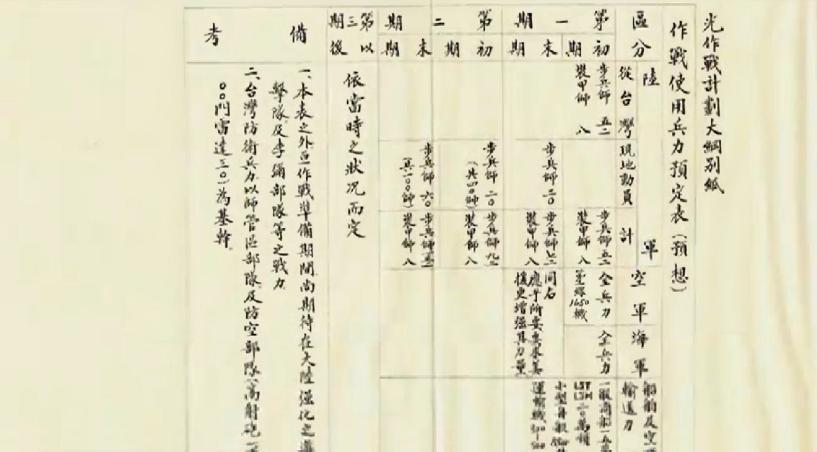 光作戰計劃大綱別紙
作戰使用兵力預定表（預想）
區分
陸軍
從台灣
現地動員
計
空軍
海軍
船舶及空
輸送力
第一期
初期
步兵師 五二
裝甲師 八
步兵師 五二
裝甲師 八
全兵力
第一線1650機
全兵力
一般商船
LST
LSM
末期
步兵師 二〇
步兵師 七二
裝甲師 八
同右
應乎所要要求美
援更增強其力量
小型舟艇
運輸機
第二期
初期
步兵師 二〇
（共四〇師）
步兵師 九二
裝甲師 八
末期
步兵師 六〇
（共一〇〇師）
步兵師
裝甲師 八
第三期以後
依當時之狀況而定
備考
一、本表之外在作戰準備期間尚期待在大陸強化之游
擊隊及李彌部隊等之戰力
二、台灣防衛兵力以師管區部隊及防空部隊（高射砲一
〇〇門雷達三〇）為基幹